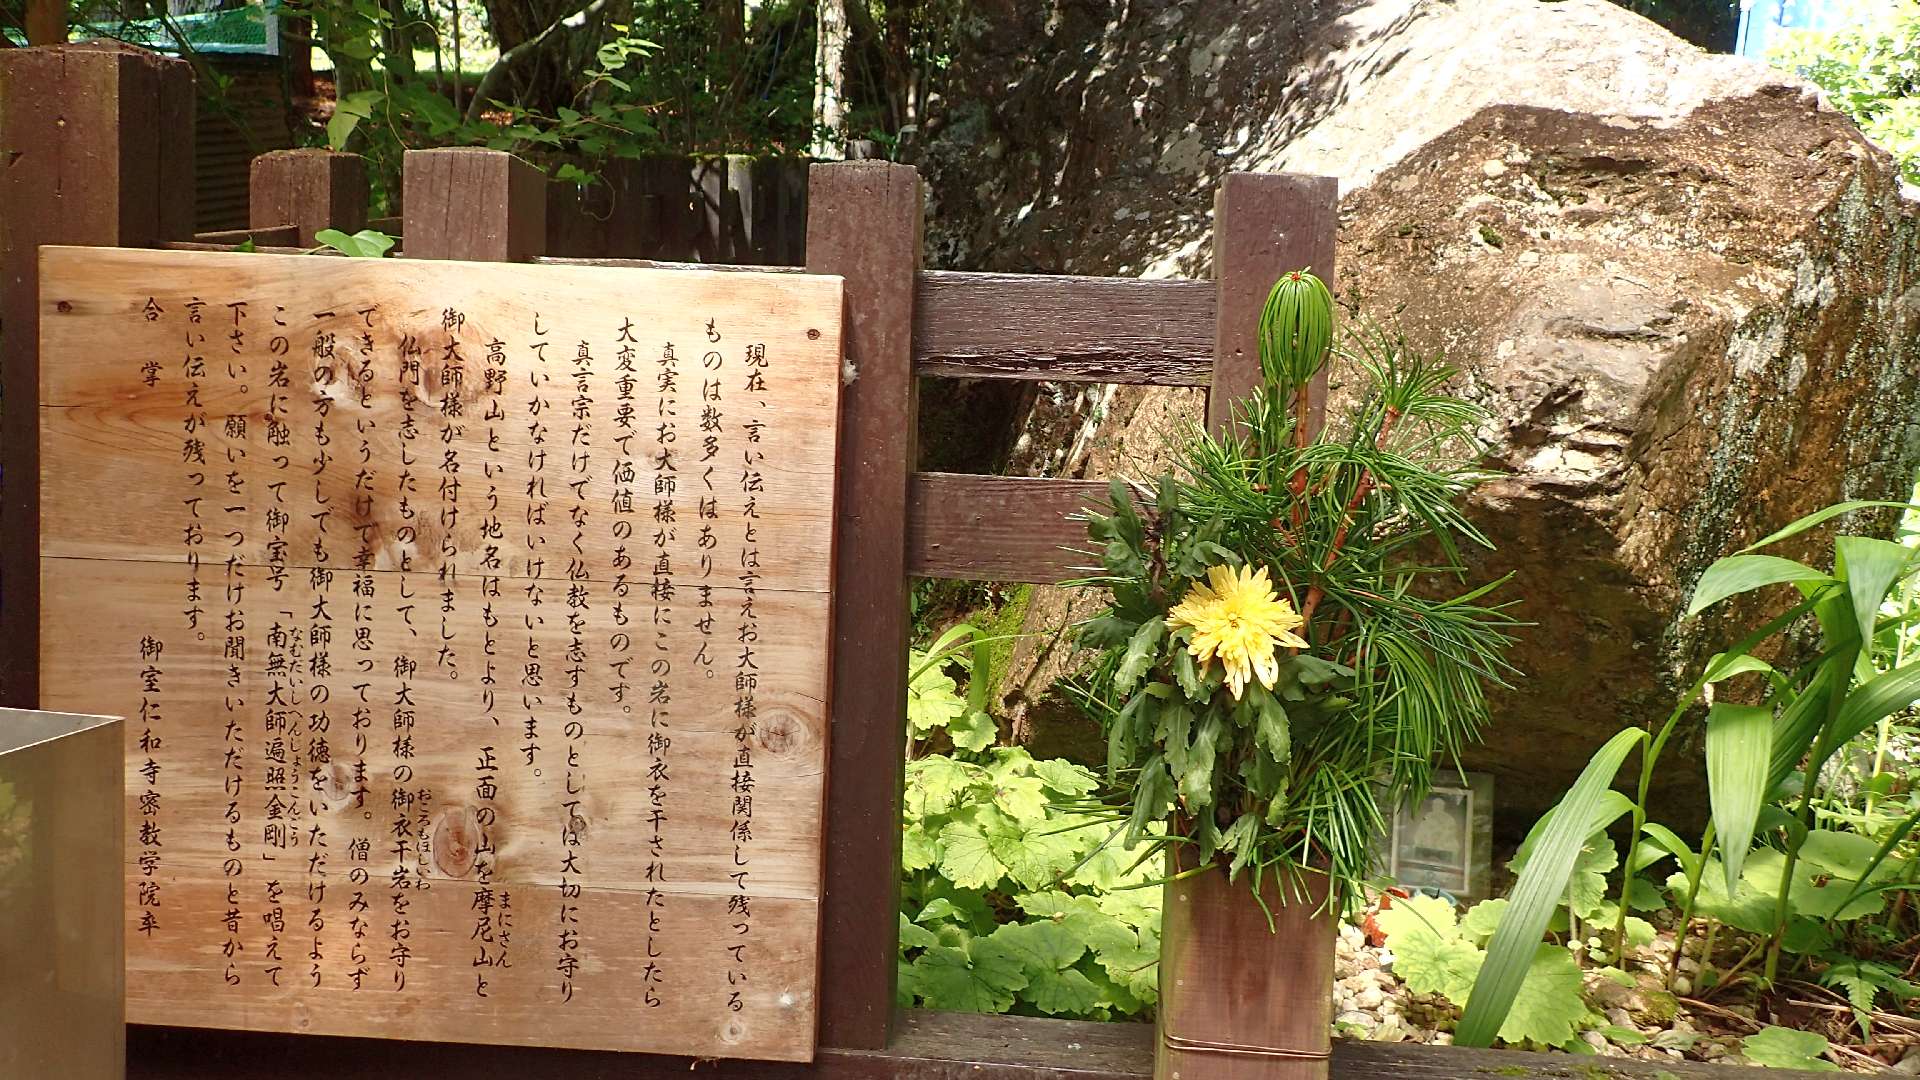 現在、言い伝えとは言えお大師様が直接関係して残っている
ものは数多くはありません。
真実にお大師様が直接にこの岩に御衣を干されたとしたら
大変重要で価値のあるものです。
真言宗だけでなく仏教を志すものとしては大切にお守り
していかなければいけないと思います。
高野山という地名はもとより、正面の山を摩尼山と
まにさん
御大師様が名付けられました。
仏門を志したものとして、御大師様の御衣干岩をお守り
おころもほしいわ
できるというだけで幸福に思っております。僧のみならず
一般の方も少しでも御大師様の功徳をいただけるよう
この岩に触って御宝号「南無大師遍照金剛」を唱えて
なむだいしへんじょうこんごう
下さい。願いを一つだけお聞きいただけるものと昔から
言い伝えが残っております。
合掌
御室仁和寺密教学院卒